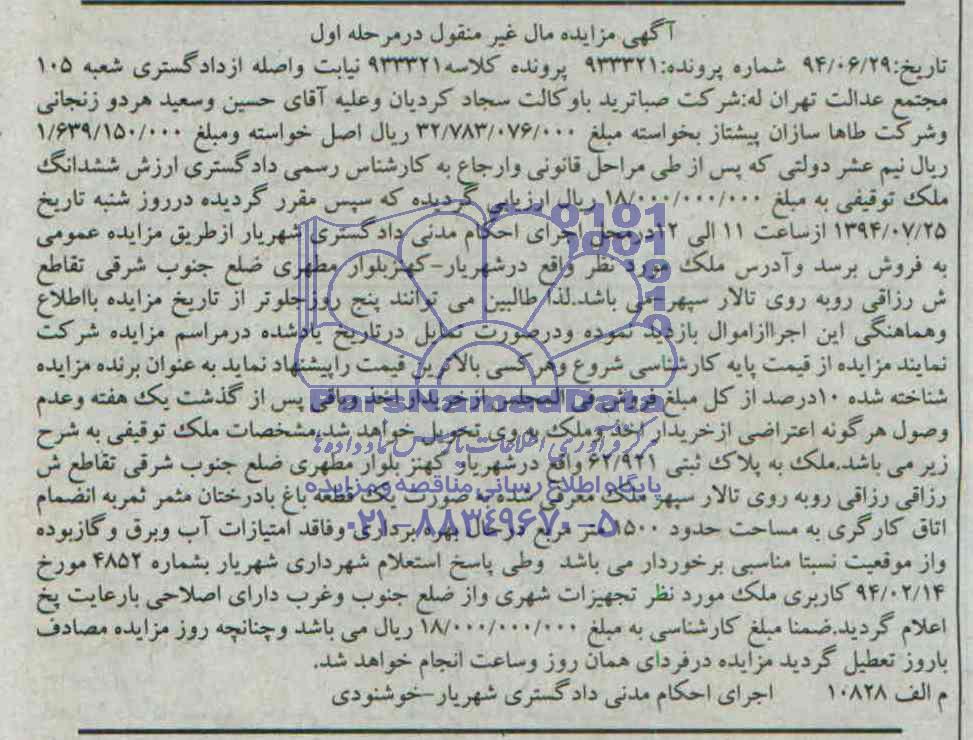 آگهی مزایده مال غیر منقول درمرحله اول
تاریخ:۹۴/۰۶/۲۹ شماره پرونده:۹۳۳۳۲۱ پرونده کلاسه۹۳۳۳۲۱ نیابت واصله ازدادگستری شعبه ۱۰۵
مجتمع عدالت تهران له:شرکت صباترید باوکالت سجاد کردیان وعلیه آقای حسین وسعید هردو زنجانی
وشرکت طاها سازان پیشتاز بخواسته مبلغ ۳۲/۷۸۳/۰۷۶/۰۰۰ ریال اصل خواسته ومبلغ ۱/۶۳۹/۱۵۰/۰۰۰
ریال نیم عشر دولتی که پس از طی مراحل قانونی وارجاع به کارشناس رسمی دادگستری ارزش ششدانگ
ملک توقیفی به مبلغ ۱۸/۰۰۰/۰۰۰/۰۰۰ ریال ارزیابی گردیده که سپس مقرر گردیده درروز شنبه تاریخ
۱۳۹۴/۰۷/۲۵ ازساعت ۱۱ الی ۱۲درمحل اجرای احکام مدنی دادگستری شهریار ازطریق مزایده عمومی
به فروش برسد وآدرس ملک مورد نظر واقع درشهریار-کهنزبلوار مطهری ضلع جنوب شرقی تقاطع
ش رزاقی روبه روی تالار سپهر-می باشد.لذا طالبین می توانند پنج روزجلوتر از تاریخ مزایده بااطلاع
وهماهنگی این اجراازاموال بازدید نموده ودرصورت تمایل درتاریخ یادشده درمراسم مزایده شرکت
نمایند مزایده از قیمت پایه کارشناسی شروع وهرکسی بالاترین قیمت راپیشنهاد نماید به عنوان برنده مزایده
شناخته شده ۱۰درصد از کل مبلغ فروش فی المجلس ازخریدار اخذ وباقی پس از گذشت یک هفته وعدم
وصول هرگونه اعتراضی ازخریدار اخذ وملک به وی تحویل خواهد شد.مشخصات ملک توقیفی به شرح
زیر می باشد.ملک به پلاک ثبتی ۶۲/۹۲۱ واقع درشهریار کهنز بلوار مطهری ضلع جنوب شرقی تقاطع ش
رزاقی رزاقی روبه روی تالار سپهر ملک معرفی شده به صورت یک قطعه باغ بادرختان مثمر ثمربه انضمام
اتاق کارگری به مساحت حدود ۱۵۰۰متر مربع درحال بهره برداری وفاقد امتیازات آب وبرق وگازبوده
واز موقعیت نسبتا مناسبی برخوردار می باشد وطی پاسخ استعلام شهرداری شهریار بشماره ۴۸۵۲ مورخ
۹۴/۰۲/۱۴ کاربری ملک مورد نظر تجهیزات شهری واز ضلع جنوب وغرب دارای اصلاحی بارعایت پخ
اعلام گردید.ضمنا مبلغ کارشناسی به مبلغ ۱۸/۰۰۰/۰۰۰/۰۰۰ ریال می باشد وچنانچه روز مزایده مصادف
باروز تعطیل گردید مزایده درفردای همان روز وساعت انجام خواهد شد.
م الف ۱۰۸۲۸ اجرای احکام مدنی دادگستری شهریار-خوشنودی
ParsNamadData
مرکز فرآوری اطلاعات پارس نماد داده‌ها
پایگاه اطلاع رسانی مناقصه و مزایده
۰۲۱-۸۸۳۴۹۶۷۰-۵